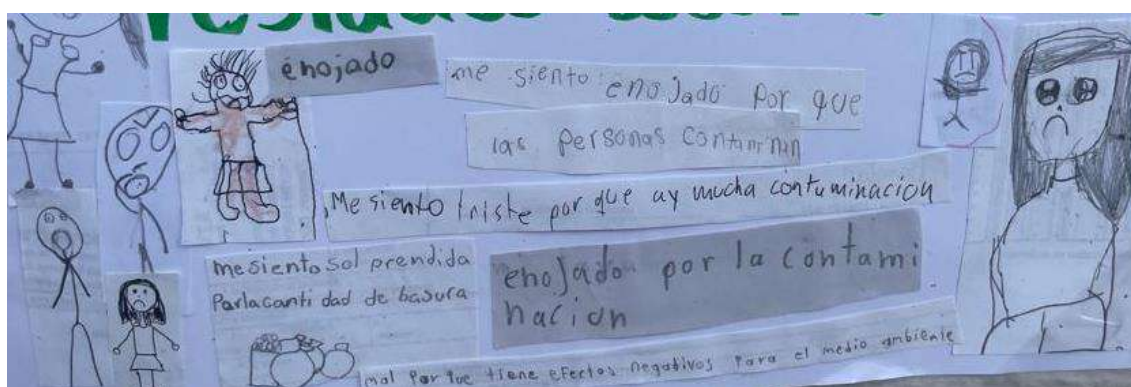 enojado
me siento enojado por que
las personas contaminan
Me siento triste por que ay mucha contuminacion
me siento sol prendida
Parla canti dad de basura
enojado por la contami
nacion
mal por que tiene efectos negativos para el medio ambiente